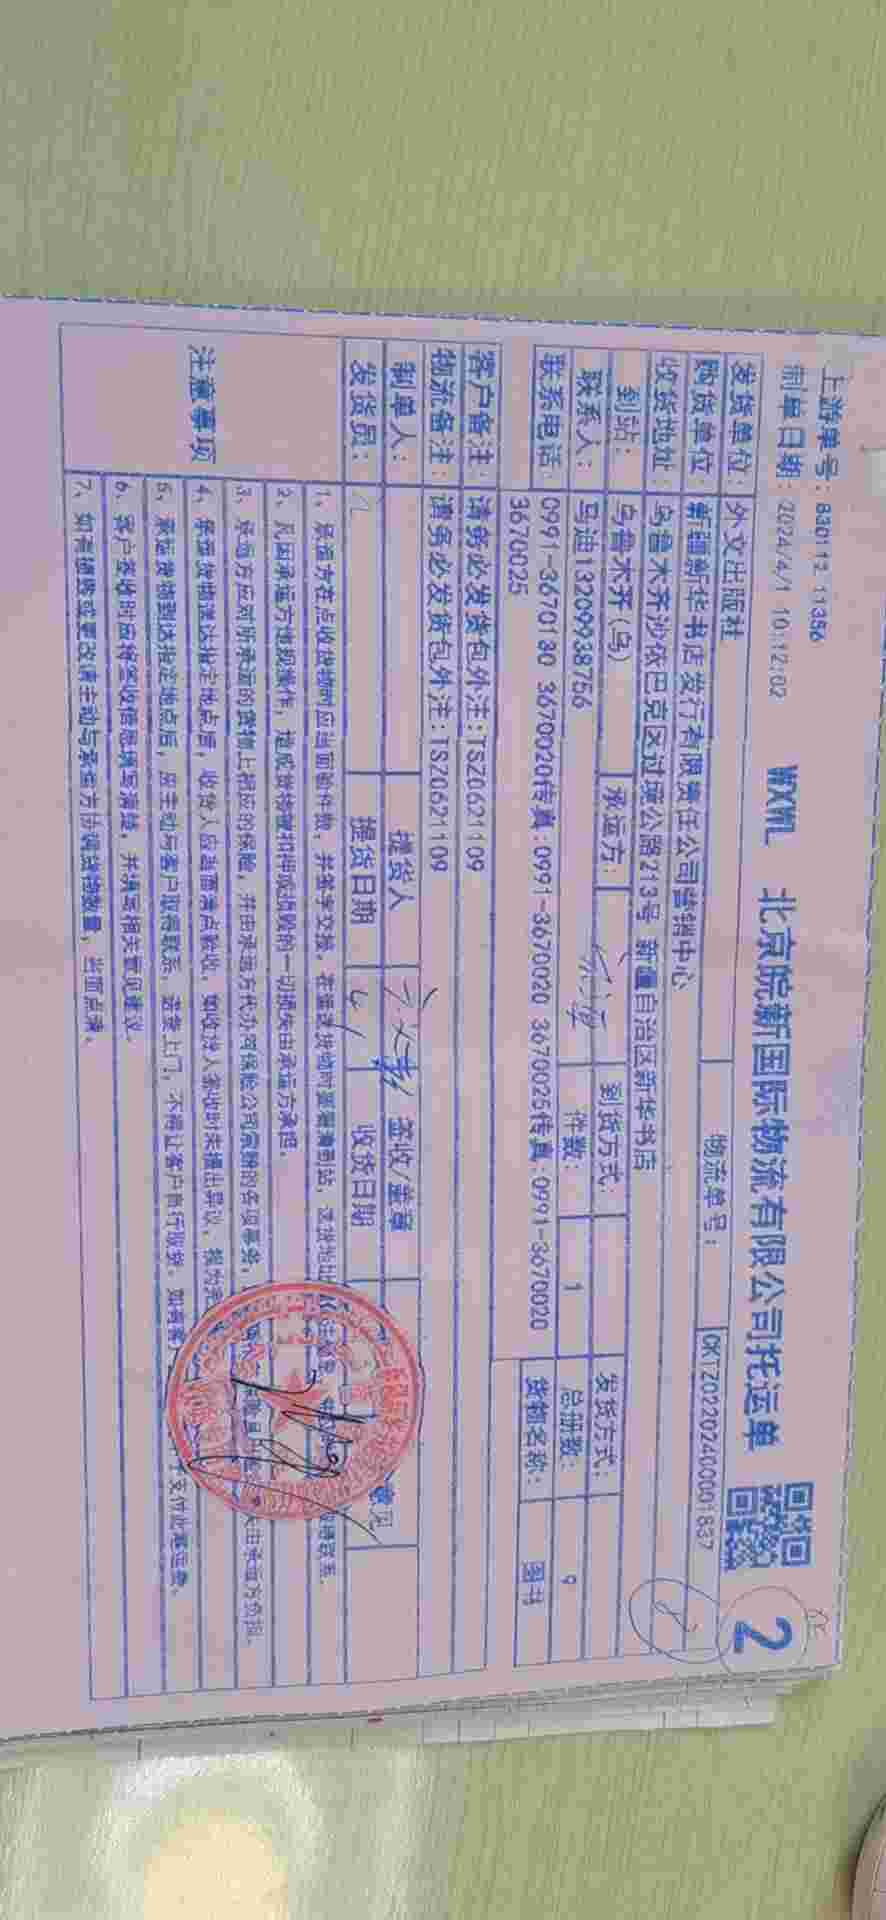 上游单号：830112 11356
制单日期：2024/4/1 10:12:02
WXWL 北京皖新国际物流有限公司托运单
2
发货单位：外文出版社
物流单号：CKTZ02202400001837
购货单位：新疆新华书店发行有限责任公司营销中心
收货地址：乌鲁木齐沙依巴克区过境公路213号 新疆自治区新华书店
到站：乌鲁木齐(乌)
承运方：
到货方式：
发货方式：
联系人：马迪13209938756
件数：1
总册数：9
联系电话：0991-3670180 3670020传真：0991-3670020 3670025传真：0991-3670020
3670025
货物名称：图书
客户备注：请务必发货包外注:TSZ0621109
物流备注：请务必发货包外注:TSZ0621109
制单人：
提货人
签收/盖章
意见
发货员：
提货日期
收货日期
注意事项
1、承运方在点收货物时应当面验件数，并签字交接。在运送货物时
2、凡因承运方违规操作，造成货物被扣押或损毁的一切损失由承运方承担。
3、承运方应对所承运的货物上相应的保险，并由承运方代办向保险公司索赔的各项事务，
4、承运货物送达指定地点后，收货人应当面清点验收，如收货人签收时未提出异议，视为完
5、承运货物到达指定地点后，应主动与客户取得联系，送货上门，不得让客户自行取货。如有客
支付此票运费。
6、客户签收时应将签收信息填写清楚，并填写相关意见建议
7、如有损毁或更改请主动与承运方协调货物数量，当面点清。